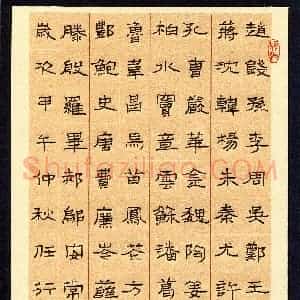 趙錢孫李周吳鄭王
蔣沈韓楊朱秦尤許
孔曹嚴華金魏陶姜
柏水竇章雲蘇潘葛
魯韋昌馬苗鳳花方
酆鮑史唐費廉岑薛
滕殷羅畢郝鄔安常
歲次甲午仲秋任行